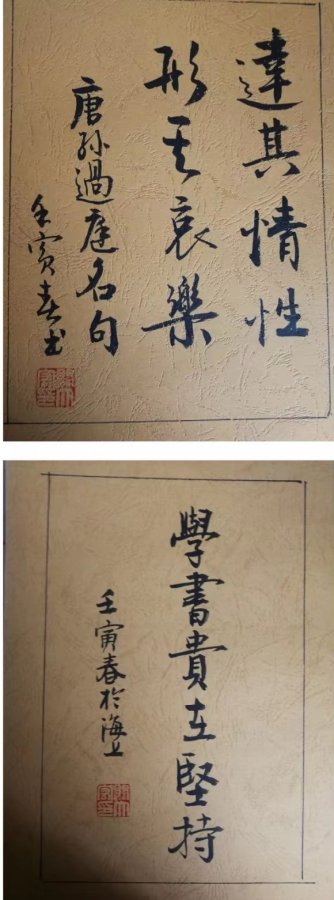 達其情性
形其哀樂
唐孫過庭名句
壬寅春书
學書貴在堅持
壬寅春於海上